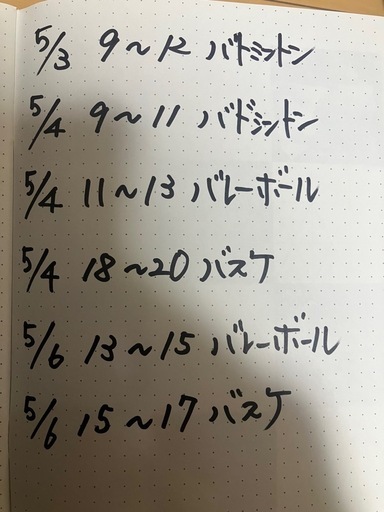 5/3 9～12 バドミントン
5/4 9～11 バドミントン
5/4 11～13 バレーボール
5/4 18～20 バスケ
5/6 13～15 バレーボール
5/6 15～17 バスケ